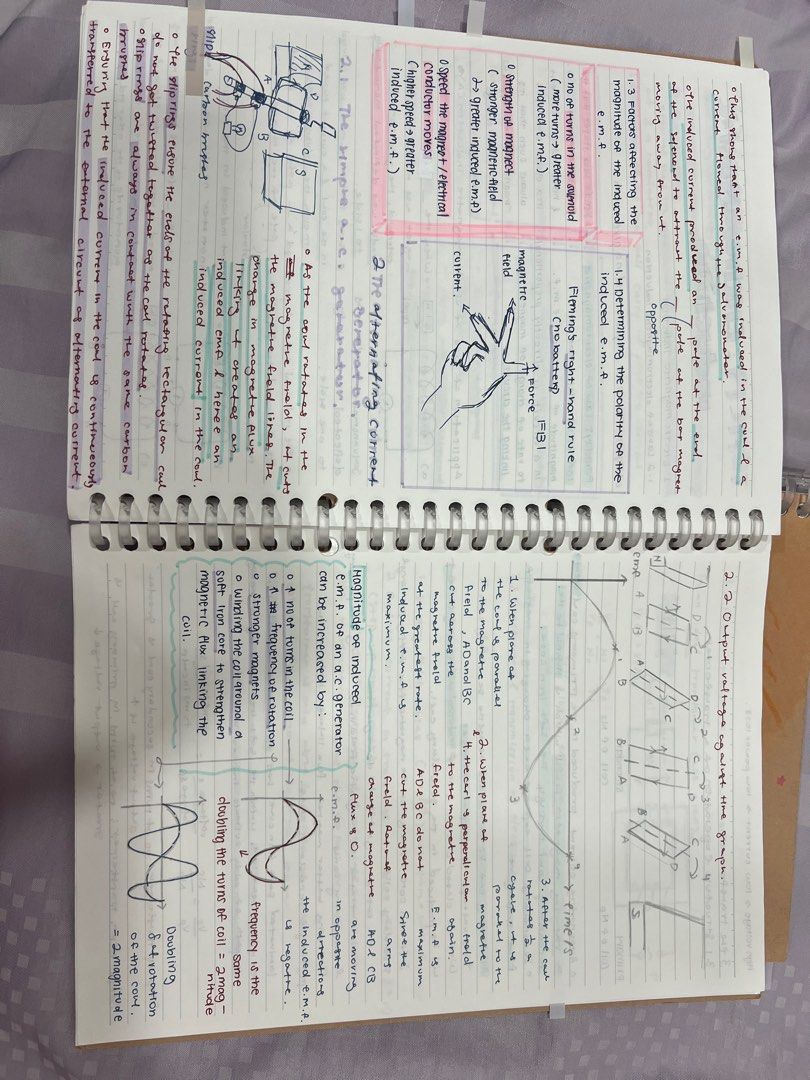 o This shows that an e.m.f was induced in the coil & a
current flowed through the galvanometer.
o The induced current produced an pole at the end
of the solenoid to attract the pole of the bar magnet
opposite
moving away from it.
1.3 Factors affecting the
magnitude of the induced
e.m.f.
o no of turns in the solenoid
(more turns → greater
induced e.m.f.)
o strength of magnet
( stronger magnetic field
→ greater induced e.m.f)
o speed the magnet / electrical
conductor moves
( higher speed → greater
induced e.m.f. )
1.4 Determining the polarity of the
induced e.m.f.
Fleming's right-hand rule
(no battery)
Force FBI
magnetic
field
current.
2 The alternating current
generator.
2.1 The simple a.c. generator.
N
D
C
S
A
B
slip
carbon brushes
o As the coil rotates in the
magnetic field, it cuts
the magnetic field lines. The
change in magnetic flux
linking it creates an
induced emf & hence an
induced current in the coil.
o The slip rings ensure the ends of the rotating rectangular coil
do not get twisted together as the coil rotates.
o slip rings are always in contact with the same carbon
brushes
o Ensuring that the induced current in the coil is continuously
transferred to the external circuit as alternating current.
2.2 Output voltage against time graph.
N
D → 1
C
A
B
D → 2
C
A
B
C → 3
D
B
A
C → 4
D
B
A
S
emf
1
2
3
4
time/s
1. When plane of
the coil is parallel
to the magnetic
field, AD and BC
cut across the
magnetic field
at the greatest rate.
Induced e.m.f is
maximum.
2. When plane of
& 4. the coil is perpendicular
to the magnetic
field.
AD & BC do not
cut the magnetic
field. Rate of
change of magnetic
flux is 0.
3. After the coil
rotates ½ a
cycle, it is
parallel to the
magnetic
field
again.
E.m.f is
maximum
since the
arms
AD & CB
are moving
in opposite
directions
the induced e.m.f.
is negative.
Magnitude of induced
e.m.f. of an a.c. generator
can be increased by:
o ↑ no of turns in the coil
o ↑ frequency of rotation
o stronger magnets
o winding the coil around a
soft iron core to strengthen
magnetic flux linking the
coil.
e.m.f.
frequency is the
same
doubling the turns of coil = 2 mag-
nitude
Doubling
f of rotation
of the coil.
= 2 magnitude